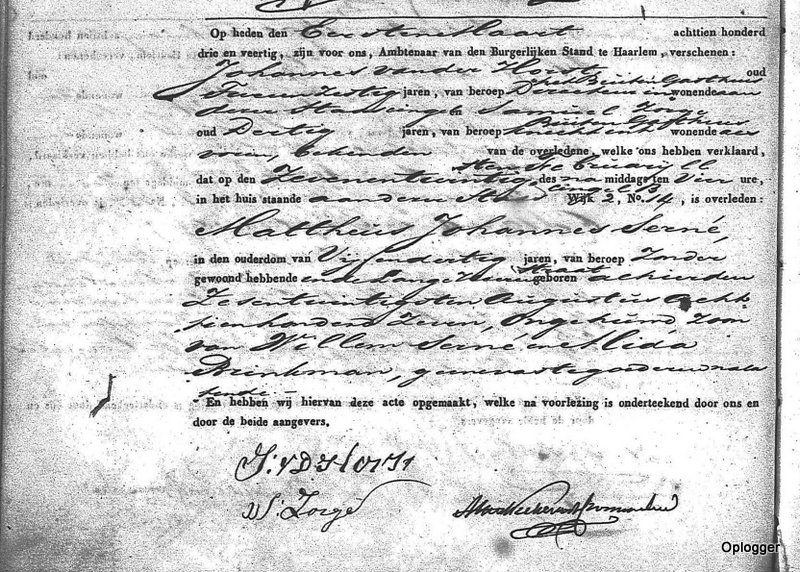 Op heden den Eersten Maart achttien honderd
drie en veertig, zijn voor ons, Ambtenaar van den Burgerlijken Stand te Haarlem, verschenen:
Johannes van der Horst oud
het Buiten Gasthuis
Tweenzestig jaren, van beroep wonende aan
en Samuel Zorge
Buiten Gasthuis
oud Dertig jaren, van beroep wonende als
voren, bekenden van de overledene, welke ons hebben verklaard,
Februarij ll
dat op den Zevenentwintigsten des na middags ten Vier ure,
in het huis staande aan den Wijk 2, No. 14, is overleden:
Cingel B
Mattheus Johannes Serné,
in den ouderdom van Vijfendertig jaren, van beroep Zonder
straat
gewoond hebbende in de Lange geboren alhier den
Zesentwintigsten Augustus acht-
tienhonderd Zeven, Ongehuwd, Zoon
van Willem Serné en Alida
Brinkman, geene vastegoederen nala-
tende
En hebben wij hiervan deze acte opgemaakt, welke na voorlezing is onderteekend door ons en
door de beide aangevers.
J. v D Horst
S. Zorgé
Oplogger